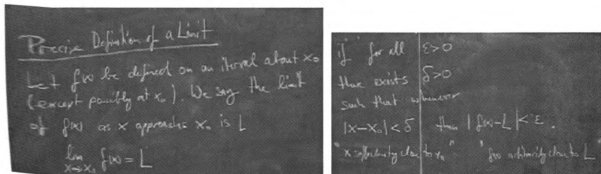 Precise Definition of a Limit
Let f(x) be defined on an iterval about x₀
(except possibly at x₀). We say the limit
of f(x) as x approaches x₀ is L
lim f(x) = L
x→x₀
if for all ε>0
there exists δ>0
such that whenever
|x-x₀|<δ then |f(x)-L|<ε.
"x sufficiently close to x₀" "f(x) arbitrarily close to L"